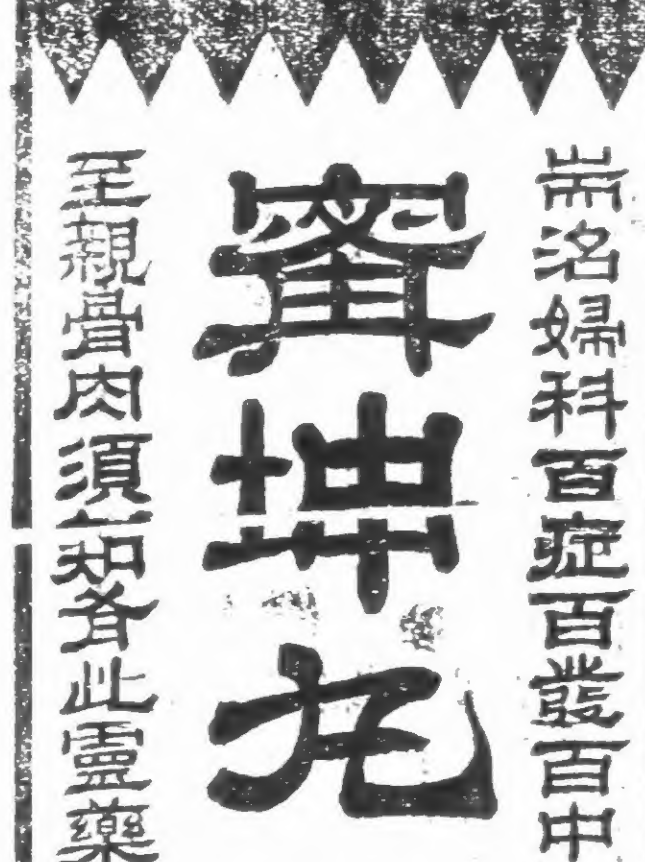 耑治婦科百症百發百中
寗坤丸
至親骨肉須知有此靈藥